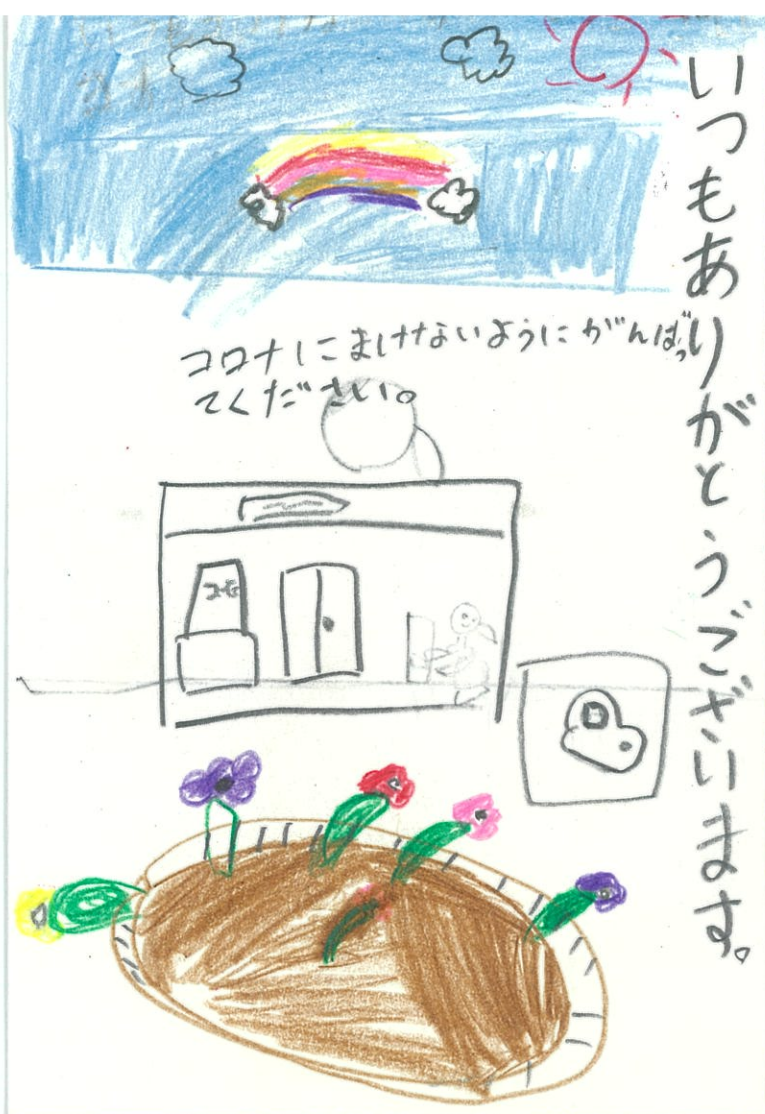 いつもありがとうございます。
コロナにまけないようにがんばっ
てください。